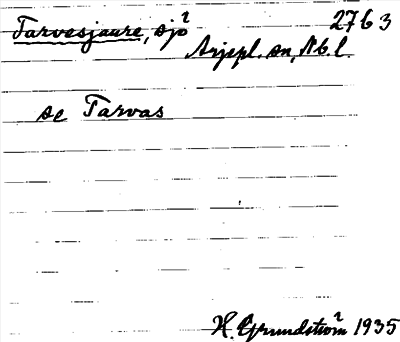 Tarvesjaure, sjö 2763
Arjepl. sn, Nb. l.
se Tarvas
H. Grundström 1935